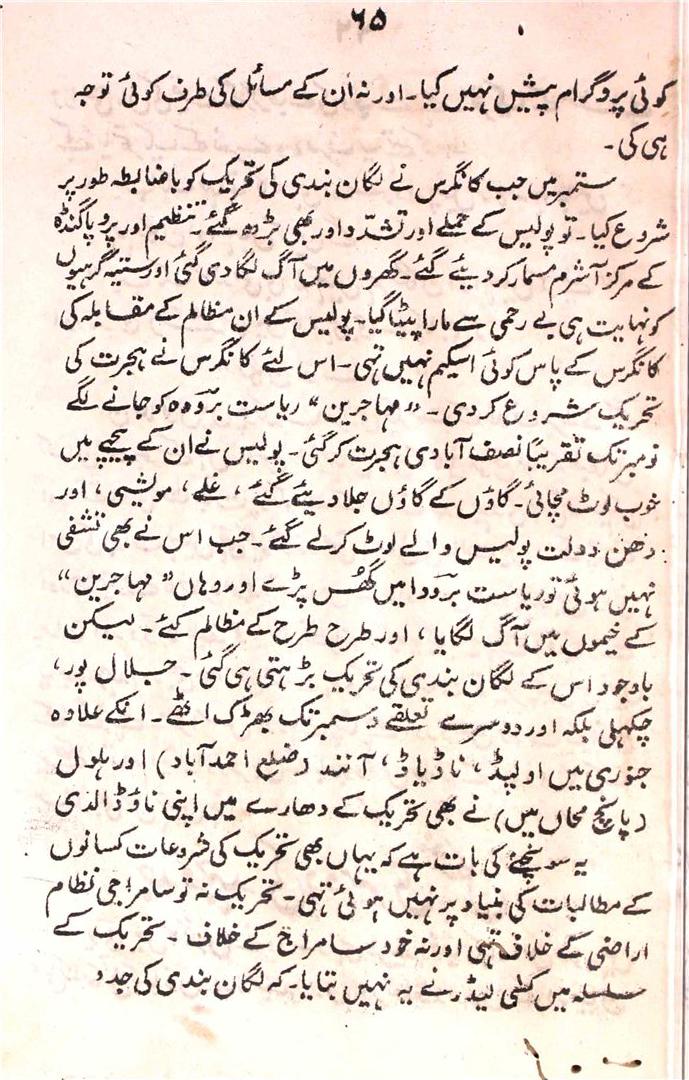 ۶۵
کوئی پروگرام پیش نہیں کیا۔ اور نہ ان کے مسائل کی طرف کوئی توجہ
ہی کی۔
ستمبر میں جب کانگرس نے لگان بندی کی تحریک کو باضابطہ طور پر
شروع کیا۔ تو پولیس کے حملے اور تشدّد اور بھی بڑھ گئے۔ تنظیم اور پروپاگنڈہ
کے مرکز آشرم مسمار کر دیئے گئے۔ گھروں میں آگ لگا دی گئی اور ستیہ گرہیوں
کو نہایت ہی بے رحمی سے مارا پیٹا گیا۔ پولیس کے ان مظالم کے مقابلہ کی
کانگرس کے پاس کوئی اسکیم نہیں تہی۔ اس لئے کانگرس نے ہجرت کی
تحریک شروع کر دی۔ "مہاجرین" ریاست بروَدہ کو جانے لگے
نومبر تک تقریبًا نصف آبادی ہجرت کر گئی۔ پولیس نے ان کے پیچھے میں
خوب لوٹ مچائی۔ گاؤں کے گاؤں جلا دیئے گئے، غلے، مویشی، اور
دھن دولت پولیس والے لوٹ کر لے گئے۔ جب اس نے بھی تشفی
نہیں ہوئی تو ریاست برَودا میں گھُس پڑے اور وہاں "مہاجرین"
کے خیموں میں آگ لگایا، اور طرح طرح کے مظالم کئے۔ لیکن
باوجود اس کے لگان بندی کی تحریک بڑہتی ہی گئی۔ جلال پور،
چکہلی بلکہ اور دوسرے تعلقے دسمبر تک بھڑک اٹھے۔ انکے علاوہ
جنوری میں اولپڈ، ناڈیاڈ، آنند (ضلع احمد آباد) اور بلول
(پانچ محاں میں) نے بھی تحریک کے دھارے میں اپنی ناؤ ڈالدی
یہ سونچنے کی بات ہے کہ یہاں بھی تحریک کی شروعات کسانوں
کے مطالبات کی بنیاد پر نہیں ہوئی تہی۔ تحریک نہ تو سامراجی نظام
اراضی کے خلاف تہی اور نہ خود سامراج کے خلاف۔ تحریک کے
سلسلہ میں کسی لیڈر نے یہ نہیں بتایا۔ کہ لگان بندی کی جدو